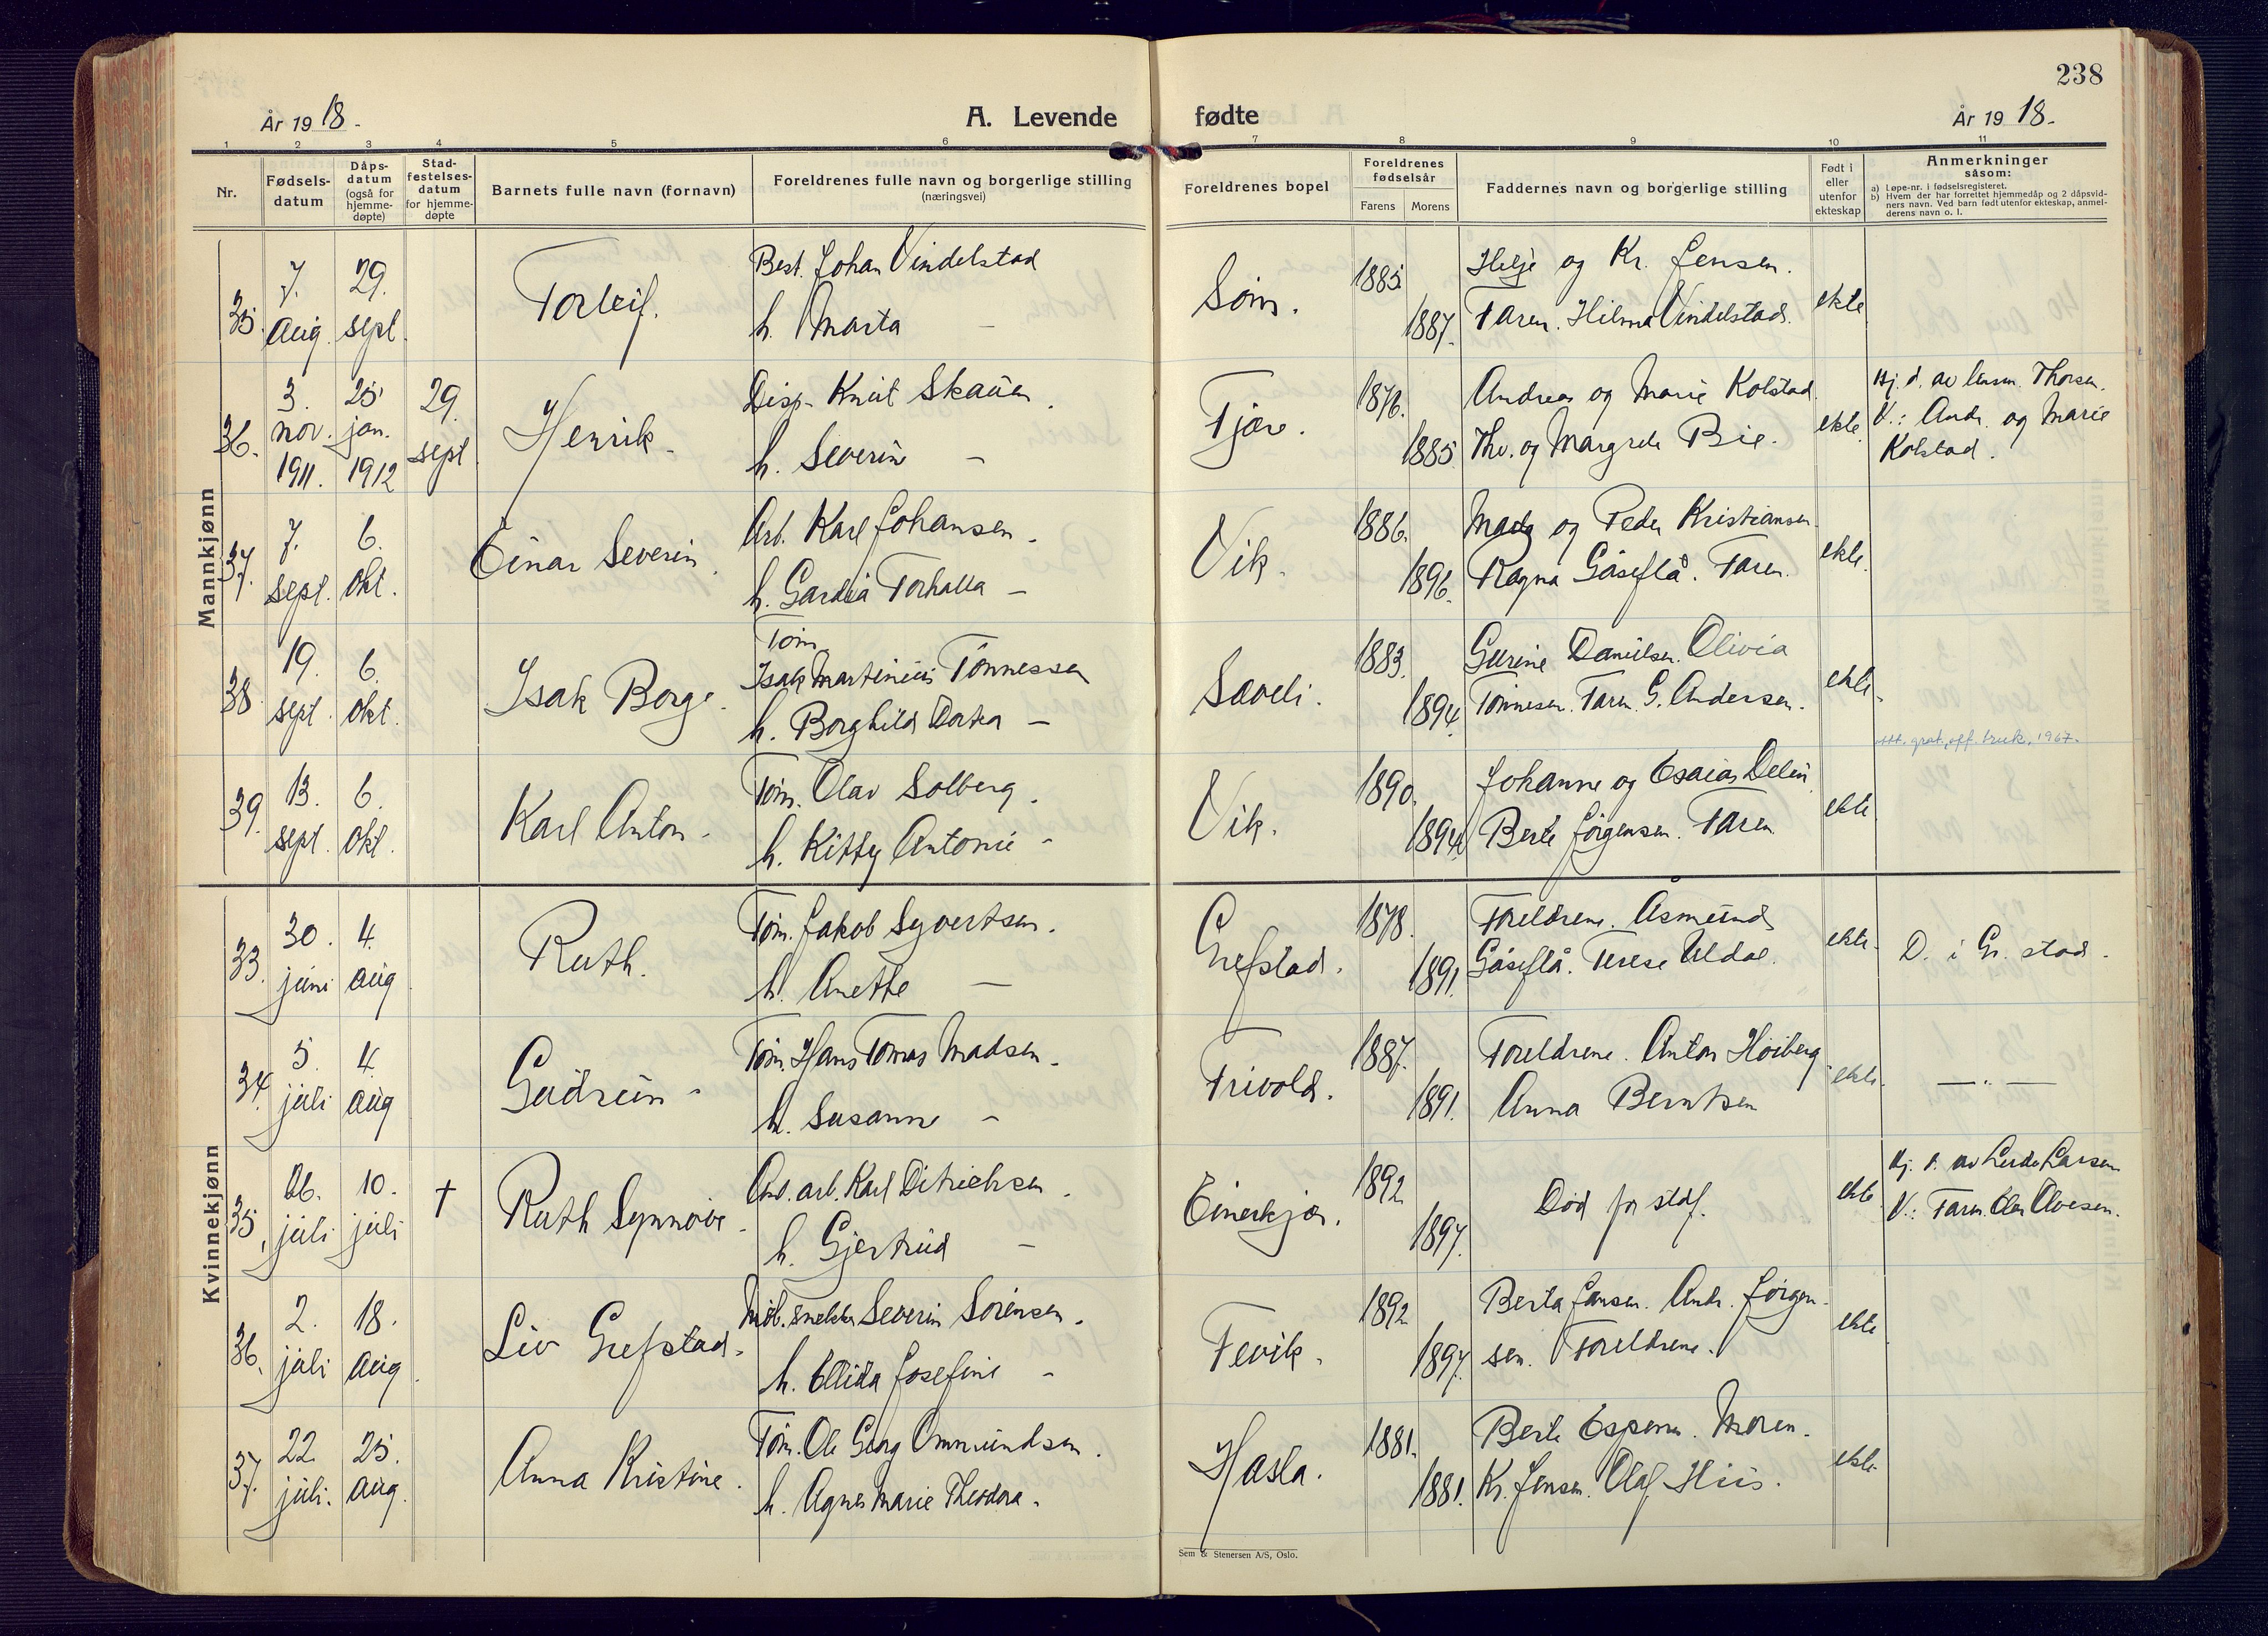 238
År 1918.
A. Levende
fødte
År 1918.
1 2 3 4 5 6 7 8 9 10 11
Nr.
Fødsels-
datum
Dåps-
datum
(også for
hjemme-
døpte)
Stad-
festelses-
datum
for hjemme-
døpte
Barnets fulle navn (fornavn)
Foreldrenes fulle navn og borgerlige stilling
(næringsvei)
Foreldrenes bopel
Foreldrenes
fødselsår
Farens Morens
Faddernes navn og borgerlige stilling
Født i
eller
utenfor
ekteskap
Anmerkninger
såsom:
a) Løpe-nr. i fødselsregisteret.
b) Hvem der har forrettet hjemmedåp og 2 dåpsvid-
ners navn. Ved barn født utenfor ekteskap, anmel-
derens navn o. l.
Mannkjønn
35. 7. aug. 29. sept. Torleif.
Best. Johan Vindelstad
h. Marta —
Søm. 1885 1887.
Helje og Kr. Jensen.
Faren. Hilma Vindelstad.
ekte
36. 3. nov. 1911. 25 jan. 1912 29. sept. Henrik.
Disp. Knut Skauen.
h. Severin —
Fjære. 1876. 1885.
Andreas og Marie Kolstad
Thv. og Margrete Bie.
ekte.
Hj. d. av Thorsen.
V.: Andr. og Marie
Kolstad.
37. 7. sept. 6. okt. Einar Severin.
Arb. Karl Johansen.
h. Gardia Torhalla —
Vik. 1886. 1896.
og Peder Kristiansen.
Ragna Gåseflå. Faren.
ekte.
38. 19. sept. 6. okt. Isak Borge.
Tøm.
Isak Martinius Tønnessen
h. Borghild Dortea —
Sæveli. 1883. 1894.
Gurine Danielsen. Olivia
Tønnesen. Faren. G. Andersen.
ekte.
att. grat. off. bruk. 1967.
39. 13. sept. 6. okt. Karl Anton.
Tøm. Olav Solberg.
h. Kitty Antonie -
Vik. 1890. 1894
Johanne og Esaias Delin
Berte Jörgensen. Faren
ekte
Kvinnekjønn
33. 30. juni 4. aug Ruth.
Tøm. Jakob Syvertsen.
h. Anette —
Grefstad. 1878. 1891.
Foreldrene. Åsmund
Gåseflå. Terese Uldal.
ekte.
D. i Gr. stad.
34. 5. juli 4. aug Gudrun -
Tøm. Hans Tomas Madsen.
h. Susanne -
Trivold. 1887. 1891.
Foreldrene. Anton Høiberg
Anna Berntsen
ekte.
— " —
35. juli 10. juli † Ruth Synnøve.
arb. Karl Ditrichsen.
h. Gjertrud —
Einerkjær. 1892 1897.
Død før stdf.
ekte
Hj. d. av Larsen
V.: Faren. Olav Olvesen.
36. 2. juli 18. aug. Liv Grefstad.
Møb. snekker Severin Sørensen.
h. Ellida Josefine -
Fevik. 1892 1897.
Berta Jansen. Andr. Jörgen-
sen. Foreldrene.
ekte
37. 22. juli. 25. aug. Anna Kristine.
Tøm. Ole Georg Ommundsen.
h. Agnes Marie Theodora.
Hasla. 1881. 1881.
Berte Espenes. Moren.
Kr. Jensen. Olaf Hiis.
ekte
Sem & Stenersen A/S, Oslo.